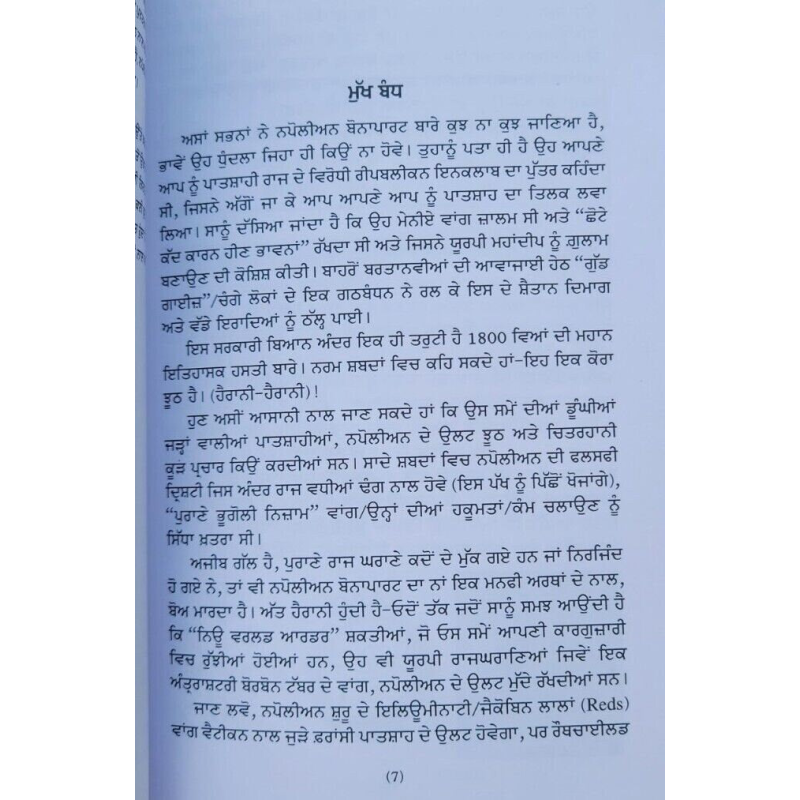 ਮੁੱਖ ਬੰਧ
ਅਸਾਂ ਸਭਨਾਂ ਨੇ ਨਪੋਲੀਅਨ ਬੋਨਾਪਾਰਟ ਬਾਰੇ ਕੁਝ ਨਾ ਕੁਝ ਜਾਣਿਆ ਹੈ,
ਭਾਵੇਂ ਉਹ ਧੁੰਦਲਾ ਜਿਹਾ ਹੀ ਕਿਉਂ ਨਾ ਹੋਵੇ। ਤੁਹਾਨੂੰ ਪਤਾ ਹੀ ਹੈ ਉਹ ਆਪਣੇ
ਆਪ ਨੂੰ ਪਾਤਸ਼ਾਹੀ ਰਾਜ ਦੇ ਵਿਰੋਧੀ ਰੀਪਬਲੀਕਨ ਇਨਕਲਾਬ ਦਾ ਪੁੱਤਰ ਕਹਿੰਦਾ
ਸੀ, ਜਿਸਨੇ ਅੱਗੋਂ ਜਾ ਕੇ ਆਪ ਆਪਣੇ ਆਪ ਨੂੰ ਪਾਤਸ਼ਾਹ ਦਾ ਤਿਲਕ ਲਵਾ
ਲਿਆ। ਸਾਨੂੰ ਦੱਸਿਆ ਜਾਂਦਾ ਹੈ ਕਿ ਉਹ ਮੇਨੀਏ ਵਾਂਗ ਜ਼ਾਲਮ ਸੀ ਅਤੇ “ਛੋਟੇ
ਕੱਦ ਕਾਰਨ ਹੀਣ ਭਾਵਨਾਂ” ਰੱਖਦਾ ਸੀ ਅਤੇ ਜਿਸਨੇ ਯੂਰਪੀ ਮਹਾਂਦੀਪ ਨੂੰ ਗ਼ੁਲਾਮ
ਬਣਾਉਣ ਦੀ ਕੋਸ਼ਿਸ਼ ਕੀਤੀ। ਬਾਹਰੋਂ ਬਰਤਾਨਵੀਆਂ ਦੀ ਆਵਾਜਾਈ ਹੇਠ “ਗੁੱਡ
ਗਾਈਜ਼”/ਚੰਗੇ ਲੋਕਾਂ ਦੇ ਇਕ ਗਠਬੰਧਨ ਨੇ ਰਲ ਕੇ ਇਸ ਦੇ ਸ਼ੈਤਾਨ ਦਿਮਾਗ
ਅਤੇ ਵੱਡੇ ਇਰਾਦਿਆਂ ਨੂੰ ਠੱਲ੍ਹ ਪਾਈ।
ਇਸ ਸਰਕਾਰੀ ਬਿਆਨ ਅੰਦਰ ਇਕ ਹੀ ਤਰੁਟੀ ਹੈ 1800 ਵਿਆਂ ਦੀ ਮਹਾਨ
ਇਤਿਹਾਸਕ ਹਸਤੀ ਬਾਰੇ। ਨਰਮ ਸ਼ਬਦਾਂ ਵਿਚ ਕਹਿ ਸਕਦੇ ਹਾਂ-ਇਹ ਇਕ ਕੋਰਾ
ਝੂਠ ਹੈ। (ਹੈਰਾਨੀ-ਹੈਰਾਨੀ)!
ਹੁਣ ਅਸੀਂ ਆਸਾਨੀ ਨਾਲ ਜਾਣ ਸਕਦੇ ਹਾਂ ਕਿ ਉਸ ਸਮੇਂ ਦੀਆਂ ਡੂੰਘੀਆਂ
ਜੜ੍ਹਾਂ ਵਾਲੀਆਂ ਪਾਤਸ਼ਾਹੀਆਂ, ਨਪੋਲੀਅਨ ਦੇ ਉਲਟ ਝੂਠ ਅਤੇ ਚਿਤਰਹਾਨੀ
ਕੂੜ ਪ੍ਰਚਾਰ ਕਿਉਂ ਕਰਦੀਆਂ ਸਨ। ਸਾਦੇ ਸ਼ਬਦਾਂ ਵਿਚ ਨਪੋਲੀਅਨ ਦੀ ਫਲਸਫੀ
ਦ੍ਰਿਸ਼ਟੀ ਜਿਸ ਅੰਦਰ ਰਾਜ ਵਧੀਆਂ ਢੰਗ ਨਾਲ ਹੋਵੇ (ਇਸ ਪੱਖ ਨੂੰ ਪਿੱਛੋਂ ਖੋਜਾਂਗੇ),
“ਪੁਰਾਣੇ ਭੂਗੋਲੀ ਨਿਜ਼ਾਮ” ਵਾਂਗ/ਉਨ੍ਹਾਂ ਦੀਆਂ ਹਕੂਮਤਾਂ/ਕੰਮ ਚਲਾਉਣ ਨੂੰ
ਸਿੱਧਾ ਖ਼ਤਰਾ ਸੀ।
ਅਜੀਬ ਗੱਲ ਹੈ, ਪੁਰਾਣੇ ਰਾਜ ਘਰਾਣੇ ਕਦੋਂ ਦੇ ਮੁੱਕ ਗਏ ਹਨ ਜਾਂ ਨਿਰਜਿੰਦ
ਹੋ ਗਏ ਨੇ, ਤਾਂ ਵੀ ਨਪੋਲੀਅਨ ਬੋਨਾਪਾਰਟ ਦਾ ਨਾਂ ਇਕ ਮਨਫੀ ਅਰਥਾਂ ਦੇ ਨਾਲ,
ਬੋਅ ਮਾਰਦਾ ਹੈ। ਅੱਤ ਹੈਰਾਨੀ ਹੁੰਦੀ ਹੈ-ਓਦੋਂ ਤੱਕ ਜਦੋਂ ਸਾਨੂੰ ਸਮਝ ਆਉਂਦੀ ਹੈ
ਕਿ “ਨਿਊ ਵਰਲਡ ਆਰਡਰ” ਸ਼ਕਤੀਆਂ, ਜੋ ਓਸ ਸਮੇਂ ਆਪਣੀ ਕਾਰਗੁਜ਼ਾਰੀ
ਵਿਚ ਰੁੱਝੀਆਂ ਹੋਈਆਂ ਹਨ, ਉਹ ਵੀ ਯੂਰਪੀ ਰਾਜਘਰਾਣਿਆਂ ਜਿਵੇਂ ਇਕ
ਅੰਤ੍ਰਰਾਸ਼ਟਰੀ ਬੋਰਬੋਨ ਟੱਬਰ ਦੇ ਵਾਂਗ, ਨਪੋਲੀਅਨ ਦੇ ਉਲਟ ਮੁੱਦੇ ਰੱਖਦੀਆਂ ਸਨ।
ਜਾਣ ਲਵੋ, ਨਪੋਲੀਅਨ ਸ਼ੁਰੂ ਦੇ ਇਲਿਊਮੀਨਾਟੀ/ਜੈਕੋਬਿਨ ਲਾਲਾਂ (Reds)
ਵਾਂਗ ਵੈਟੀਕਨ ਨਾਲ ਜੁੜੇ ਫ਼ਰਾਂਸੀ ਪਾਤਸ਼ਾਹ ਦੇ ਉਲਟ ਹੋਵੇਗਾ, ਪਰ ਰੌਥਚਾਈਲਡ
(7)